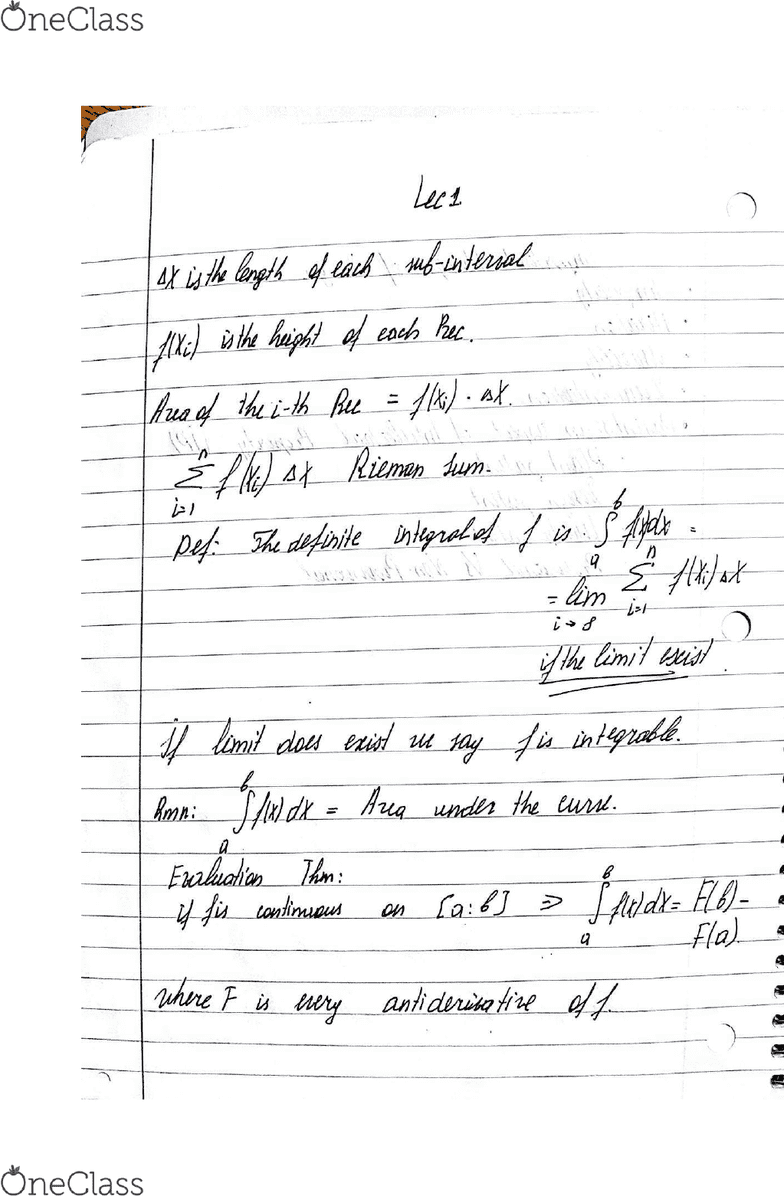 OneClass
Lec 1
Δx is the length of each sub-interval
f(xi) is the height of each Rec.
Area of the i-th Rec = f(xi) · Δx.
n
Σ f(xi) Δx Rieman sum.
i=1
Def: The definite integral of f is ∫ₐᵇ f(x)dx =
= lim i→8 Σ i=1 n f(xi) Δx
if the limit exist.
If limit does exist we say f is integrable.
Rmn: ∫ₐᵇ f(x) dx = Area under the curve.
Evaluation Thm:
if f is continuous on [a:b] ⇒ ∫ₐᵇ f(x) dx = F(b) -
F(a).
where F is every antiderivative of f.
OneClass